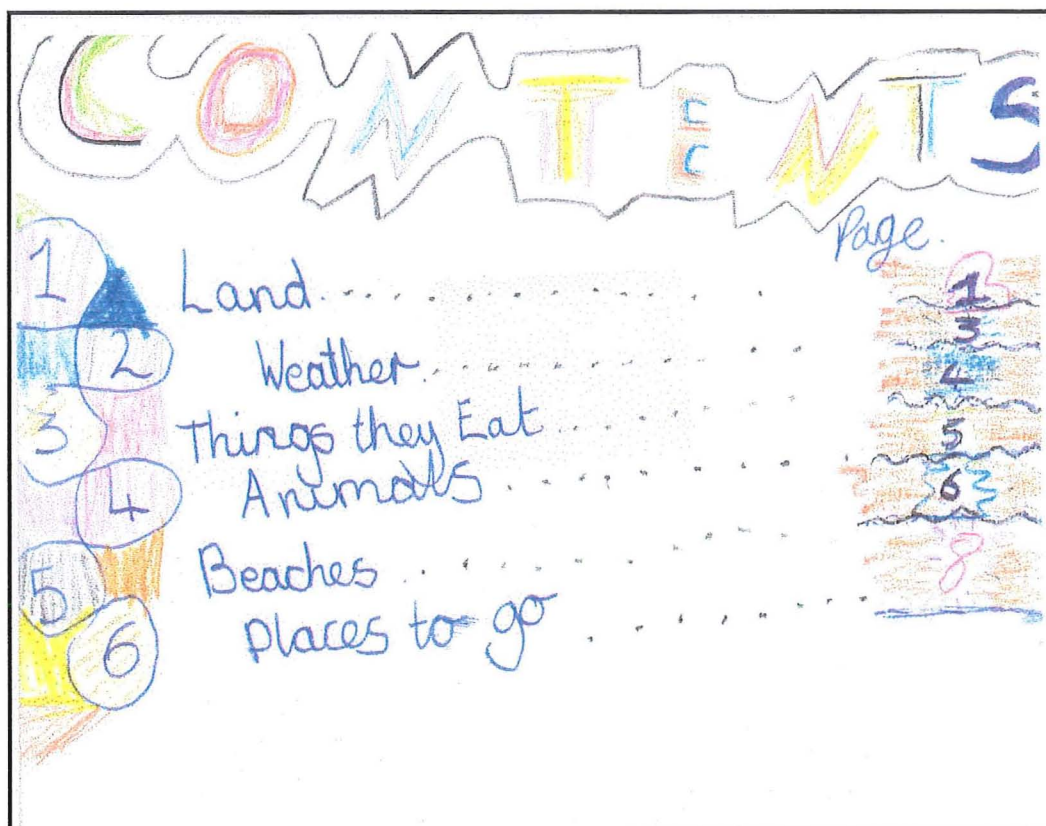 CONTENTS
Page.
1 Land.............. 1
2 Weather........... 3
3 Things they Eat.......... 4
4 Animals........... 5
5 Beaches........... 6
6 Places to go....... 8